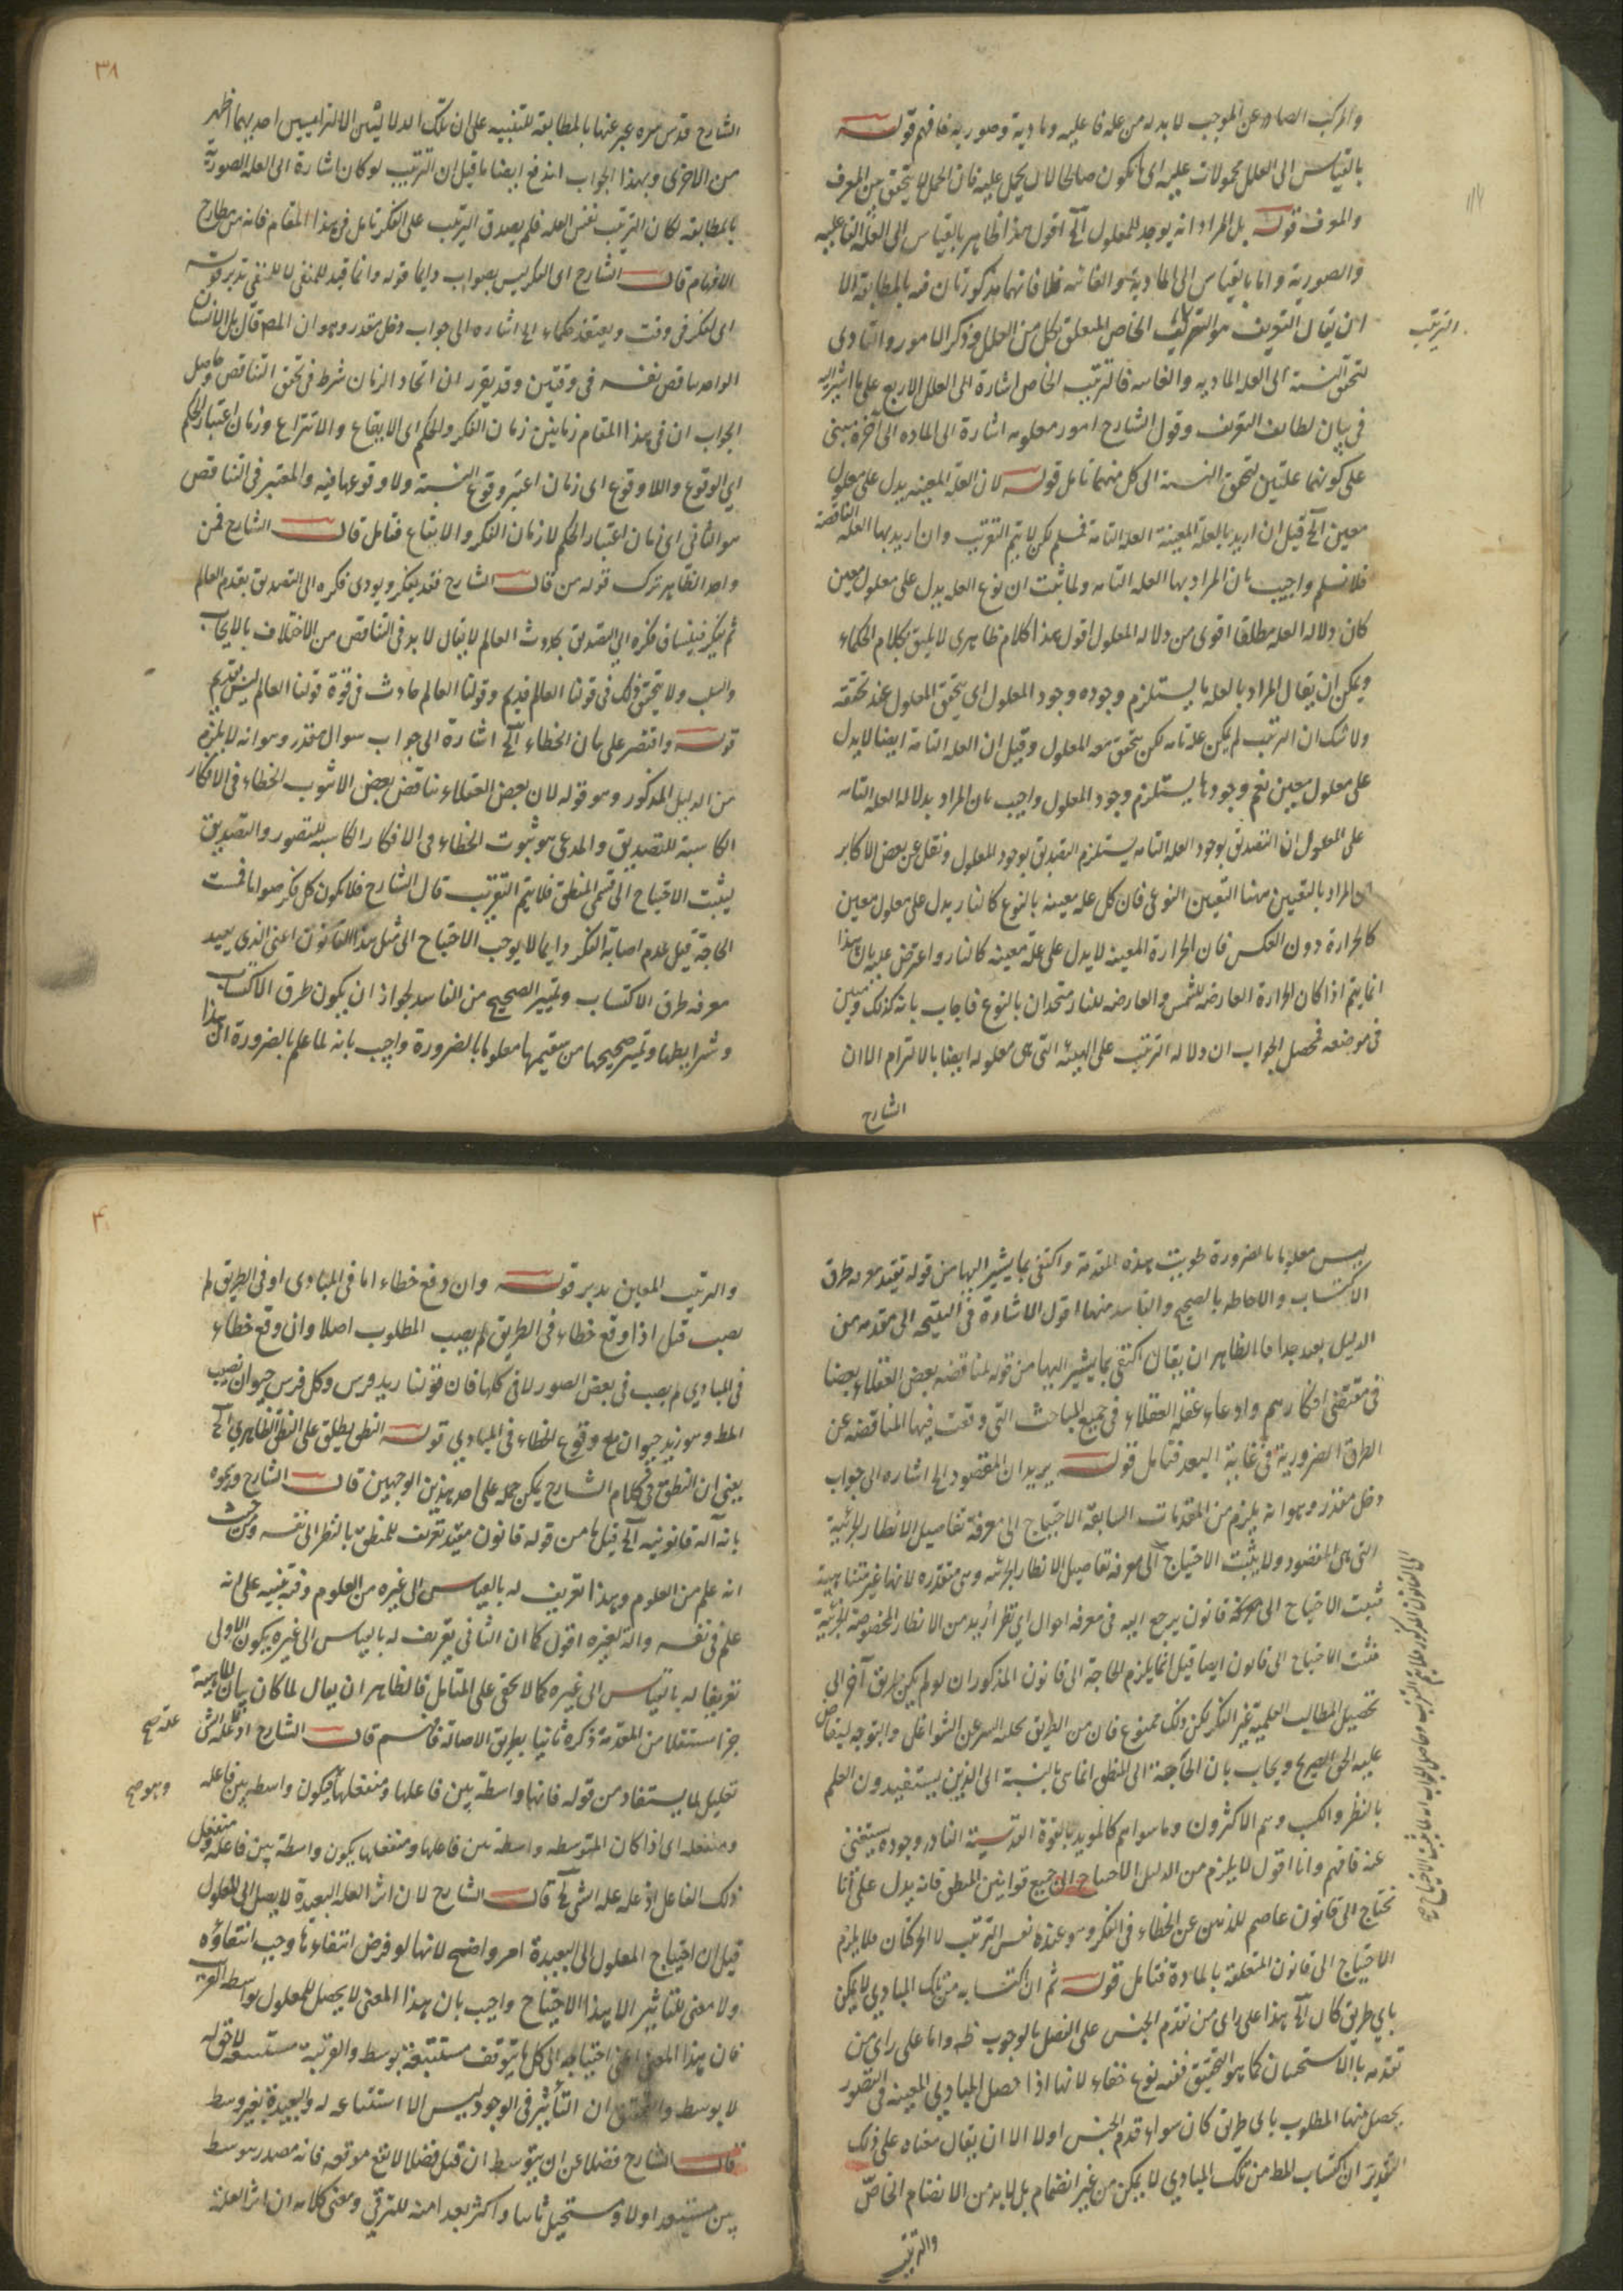 والمركب الصادر عن الموجب لا بد له من علة فاعلية ومادية وصورية فافهم قوله
بالقياس الى العلل محمولات عليه اى تكون صالحا لان يحمل عليه فان الحمل يتحقق بين المعرف
والمعرف قوله بل المراد انه يوجد للمعلول الخ اقول هذا ظاهر بالقياس الى العلة الفاعلية
والصورية واما بالقياس الى المادية والغائية فلا فانهما مذكورتان فيه بالمطابقة الا
ان يقال التعريف هو التعريف الخاص المتعلق بكل من العلل وذكر الامور والتأدى
الترتيب
لتحقق النسبة الى العلة المادية والغائية فالترتيب الخاص اشارة الى العلل الاربع على ما اشير اليه
فى بيان لطايف التعريف وقول الشارح امور معلومة اشارة الى المادة الى آخره مبنى
على كونهما علتين لتحقق النسبة الى كل منهما تامل قوله لان العلة المعينة يدل على معلول
معين الخ قيل ان اريد بالعلة المعينة العلة التامة فمسلم لكن لا يتم التقريب وان اريد بها العلة الناقصة
فلا نسلم واجيب بان المراد بها العلة التامة ولما ثبت ان نوع العلة يدل على معلول معين
كان دلالة العلة مطلقا اقوى من دلالة المعلول اقول هذا كلام ظاهرى لا يليق بكلام الحكماء
ويمكن ان يقال المراد بالعلة ما يستلزم وجوده وجود المعلول اى يتحقق المعلول عند تحققه
ولا شك ان الترتيب لم يكن علة تامة لكن يتحقق معه المعلول وقيل ان العلة التامة ايضا لا يدل
على معلول معين نعم وجودها يستلزم وجود المعلول واجيب بان المراد بدلالة العلة التامة
على المعلول ان التصديق بوجود العلة التامة يستلزم التصديق بوجود المعلول ونقل عن بعض الاكابر
ان المراد بالتعين ههنا التعين النوعى فان كل علة معينة بالنوع كالنار يدل على معلول معين
كالحرارة دون العكس فان الحرارة المعينة لا يدل على علة معينة كالنار واعترض عليه بان هذا
انما يتم اذا كان الحرارة العارضة للشمس والعارضة للنار متحدان بالنوع فاجاب بانه كذلك وبين
فى موضعه فمحصل الجواب ان دلالة الترتيب على الهيئة التى هى معلوله ايضا بالالتزام الا ان
الشارح
٣٨
الشارح قدس سره عبر عنها بالمطابقة للتنبيه على ان تلك الدلالتين الالتزاميتين احديهما اظهر
من الاخرى وبهذا الجواب اندفع ايضا ما قيل ان الترتيب لو كان اشارة الى العلة الصورية
بالمطابقة لكان الترتيب نفس العلة فلم يصدق الترتيب على الفكر تامل فى هذا المقام فانه من مطارح
الافهام قال الشارح اى الفكر ليس بصواب دايما قوله دايما قيد للمنفى لا للنفى تدبر قوله
اى يفكر فى وقت ويعتقد حكماء الخ اشارة الى جواب دخل مقدر وهو ان المص قال بل الانسان
الواحد يناقض نفسه فى وقتين وقد يقرر ان اتحاد الزمان شرط فى تحقق التناقض وحاصل
الجواب ان فى هذا المقام زمانين زمان الفكر والحكم اى الايقاع والانتزاع وزمان اعتبار الحكم
اى الوقوع واللاوقوع اى زمان اعتبر وقوع النسبة ولا وقوعها فيه والمعتبر فى التناقض
هو الثانى اى زمان اعتبار الحكم لا زمان الفكر والايقاع فتامل قال الشارح فمن
واحد الظاهر ترك قوله من قال الشارح فقد يفكر ويودى فكره الى التصديق بقدم العالم
ثم يفكر فينساق فكره الى التصديق بحدوث العالم لا يقال لا بد فى التناقض من الاختلاف بالايجاب
والسلب ولا يتحقق ذلك فى قولنا العالم قديم وقولنا العالم حادث فى قوة قولنا العالم ليس بقديم
قوله واقتصر على بيان الخطاء الخ اشارة الى جواب سوال مقدر وهو انه لا يلزم
من الدليل المذكور وهو قوله لان بعض العقلاء يناقض بعض الا ثبوت الخطاء فى الافكار
الكاسبة للتصديق والمدعى هو ثبوت الخطاء فى الافكار الكاسبة للتصور والتصديق
ليثبت الاحتياج الى قسمى المنطق فلا يتم التقريب قال الشارح فلا يكون كل فكر صوابا فمست
الحاجة قيل عدم اصابة الفكر دايما لا يوجب الاحتياج الى مثل هذا القانون اعنى الذى يفيد
معرفة طرق الاكتساب وتمييز الصحيح من الفاسد لجواز ان يكون طرق الاكتساب
وشرايطها وتمييز صحيحها من سقيمها معلوما بالضرورة واجيب بانه لما علم بالضرورة ان هذا
ليس معلوما بالضرورة طويت هذه المقدمة واكتفى بما يشير اليها من قوله يفيد معرفة طرق
الاكتساب والاحاطة بالصحيح والفاسد منها اقول الاشارة فى النتيجة الى مقدمة من
الدليل بعيد جدا فالظاهر ان يقال اكتفى بما يشير اليها من قوله لمناقضة بعض العقلاء بعضا
فى مقتضى افكارهم وادعاء غفلة العقلاء فى جميع المباحث التى وقعت فيها المناقضة عن
الطرق الضرورية فى غاية البعد فتامل قوله يريد ان المقصود الخ اشارة الى جواب
دخل مقدر وهو انه يلزم من المقدمات السابقة الاحتياج الى معرفة تفاصيل الانظار الجزئية
التى هى المقصود ولا يثبت الاحتياج الى معرفة تفاصيل الانظار الجزئية وهى متعذرة لانها غير متناهية
فثبت الاحتياج الى معرفة قانون يرجع اليه فى معرفة احوال اى نظر اريد من الانظار المخصوصة الجزئية
فثبت الاحتياج الى قانون ايضا قيل انما يلزم الحاجة الى قانون المذكور ان لو لم يكن طريق آخر الى
تحصيل المطالب العلمية غير الفكر لكن ذلك ممنوع فان من الطريق تخلية السر عن الشواغل والتوجه ليفاض
عليه الحق الصريح ويجاب بان الحاجة الى المنطق انما هى بالنسبة الى الذين يستفيدون العلم
بالنظر والكسب وهم الاكثرون وما سواهم كالمويد بالقوة القدسية النادر وجوده يستغنى
عنه فافهم وانا اقول لا يلزم من الدليل الاحتياج الى جميع قوانين المنطق فانه يدل على انا
نحتاج الى قانون عاصم للذهن عن الخطاء فى الفكر وهو عنده نفس الترتيب لا الحركتان فلا يلزم
الاحتياج الى قانون المتعلقة بالمادة فتامل قوله ثم ان اكتسابه من تلك المبادى لا يمكن
باى طريق كان الخ هذا على راى من تقدم الجنس على الفصل بالوجوب ظه واما على راى من
تقدمه بالاستحسان كما هو التحقيق ففيه نوع خفاء لانها اذا حصل المبادى المعينة فى التصور
يحصل منها المطلوب باى طريق كان سواء قدم الجنس اولا الا ان يقال معناه على ذلك
التقدير ان اكتساب المط من تلك المبادى لا يمكن من غير انضمام بل لا بد من الانضمام الخاص
والترتيب
والترتيب المعين تدبر قوله وان وقع خطاء اما فى المبادى او فى الطريق لم
يصب قيل اذا وقع خطاء فى الطريق لم يصب المطلوب اصلا وان وقع خطاء
فى المبادى لم يصب فى بعض الصور لا فى كلها فان قولنا زيد فرس وكل فرس حيوان يصيب
المط وهو زيد حيوان مع وقوع الخطاء فى المبادى قوله النطق يطلق على النطق الظاهرى الخ
يعنى ان النطق فى كلام الشارح يمكن حمله على احد هذين الوجهين قال الشارح ورسموه
بانه آلة قانونية الخ قيل ها من قوله قانون يفيد تعريف للمنطق بالنظر الى نفسه ومن حيث
انه علم من العلوم وهذا تعريف له بالقياس الى غيره من العلوم وفيه تنبيه على انه
علم فى نفسه وآلة لغيره اقول كما ان الثانى تعريف له بالقياس الى غيره يكون الاولى
تعريفا له بالقياس الى غيره كما لا يخفى على المتامل فالظاهر ان يقال لما كان بيان الماهية
جزا مستقلا من المقدمة ذكره ثانيا بطريق الاصالة فافهم قال الشارح اذ علة الشئ
علة صح
تعليل لما يستفاد من قوله فانها واسطة بين فاعلها ومنفعلها فيكون واسطة بين فاعله
وهو صح
ومنفعله اى اذا كان المتوسطة واسطة بين فاعلها ومنفعلها يكون واسطة بين فاعله ومنفعل
ذلك الفاعل اذ علة علة الشئ الخ قال الشارح لان اثر العلة البعيدة لا يصل الى المعلول
قيل ان احتياج المعلول الى البعيدة امر واضح لانها لو فرض انتفاءها وجب انتفاؤه
ولا معنى للتاثير الا هذا الاحتياج واجيب بان هذا المعنى لا يحصل للمعلول بواسطة القريب
فان هذا المعنى اعنى احتياجه الى كل ما يتوقف مستتبعة بوسط والقريبة مستتبعة لاحقه
لا بوسط والمعنى ان التأثير فى الوجود ليس الا استتباعه له والبعيدة بغير وسط
قال الشارح فضلا عن ان يتوسط ان قيل فضلا لا تقع موقعه فانه مصدر يتوسط
بين مستبعد اولا ومستحيل ثانيا واكثر بعدا منه للترقى ومعنى كلامه ان اثر العلة